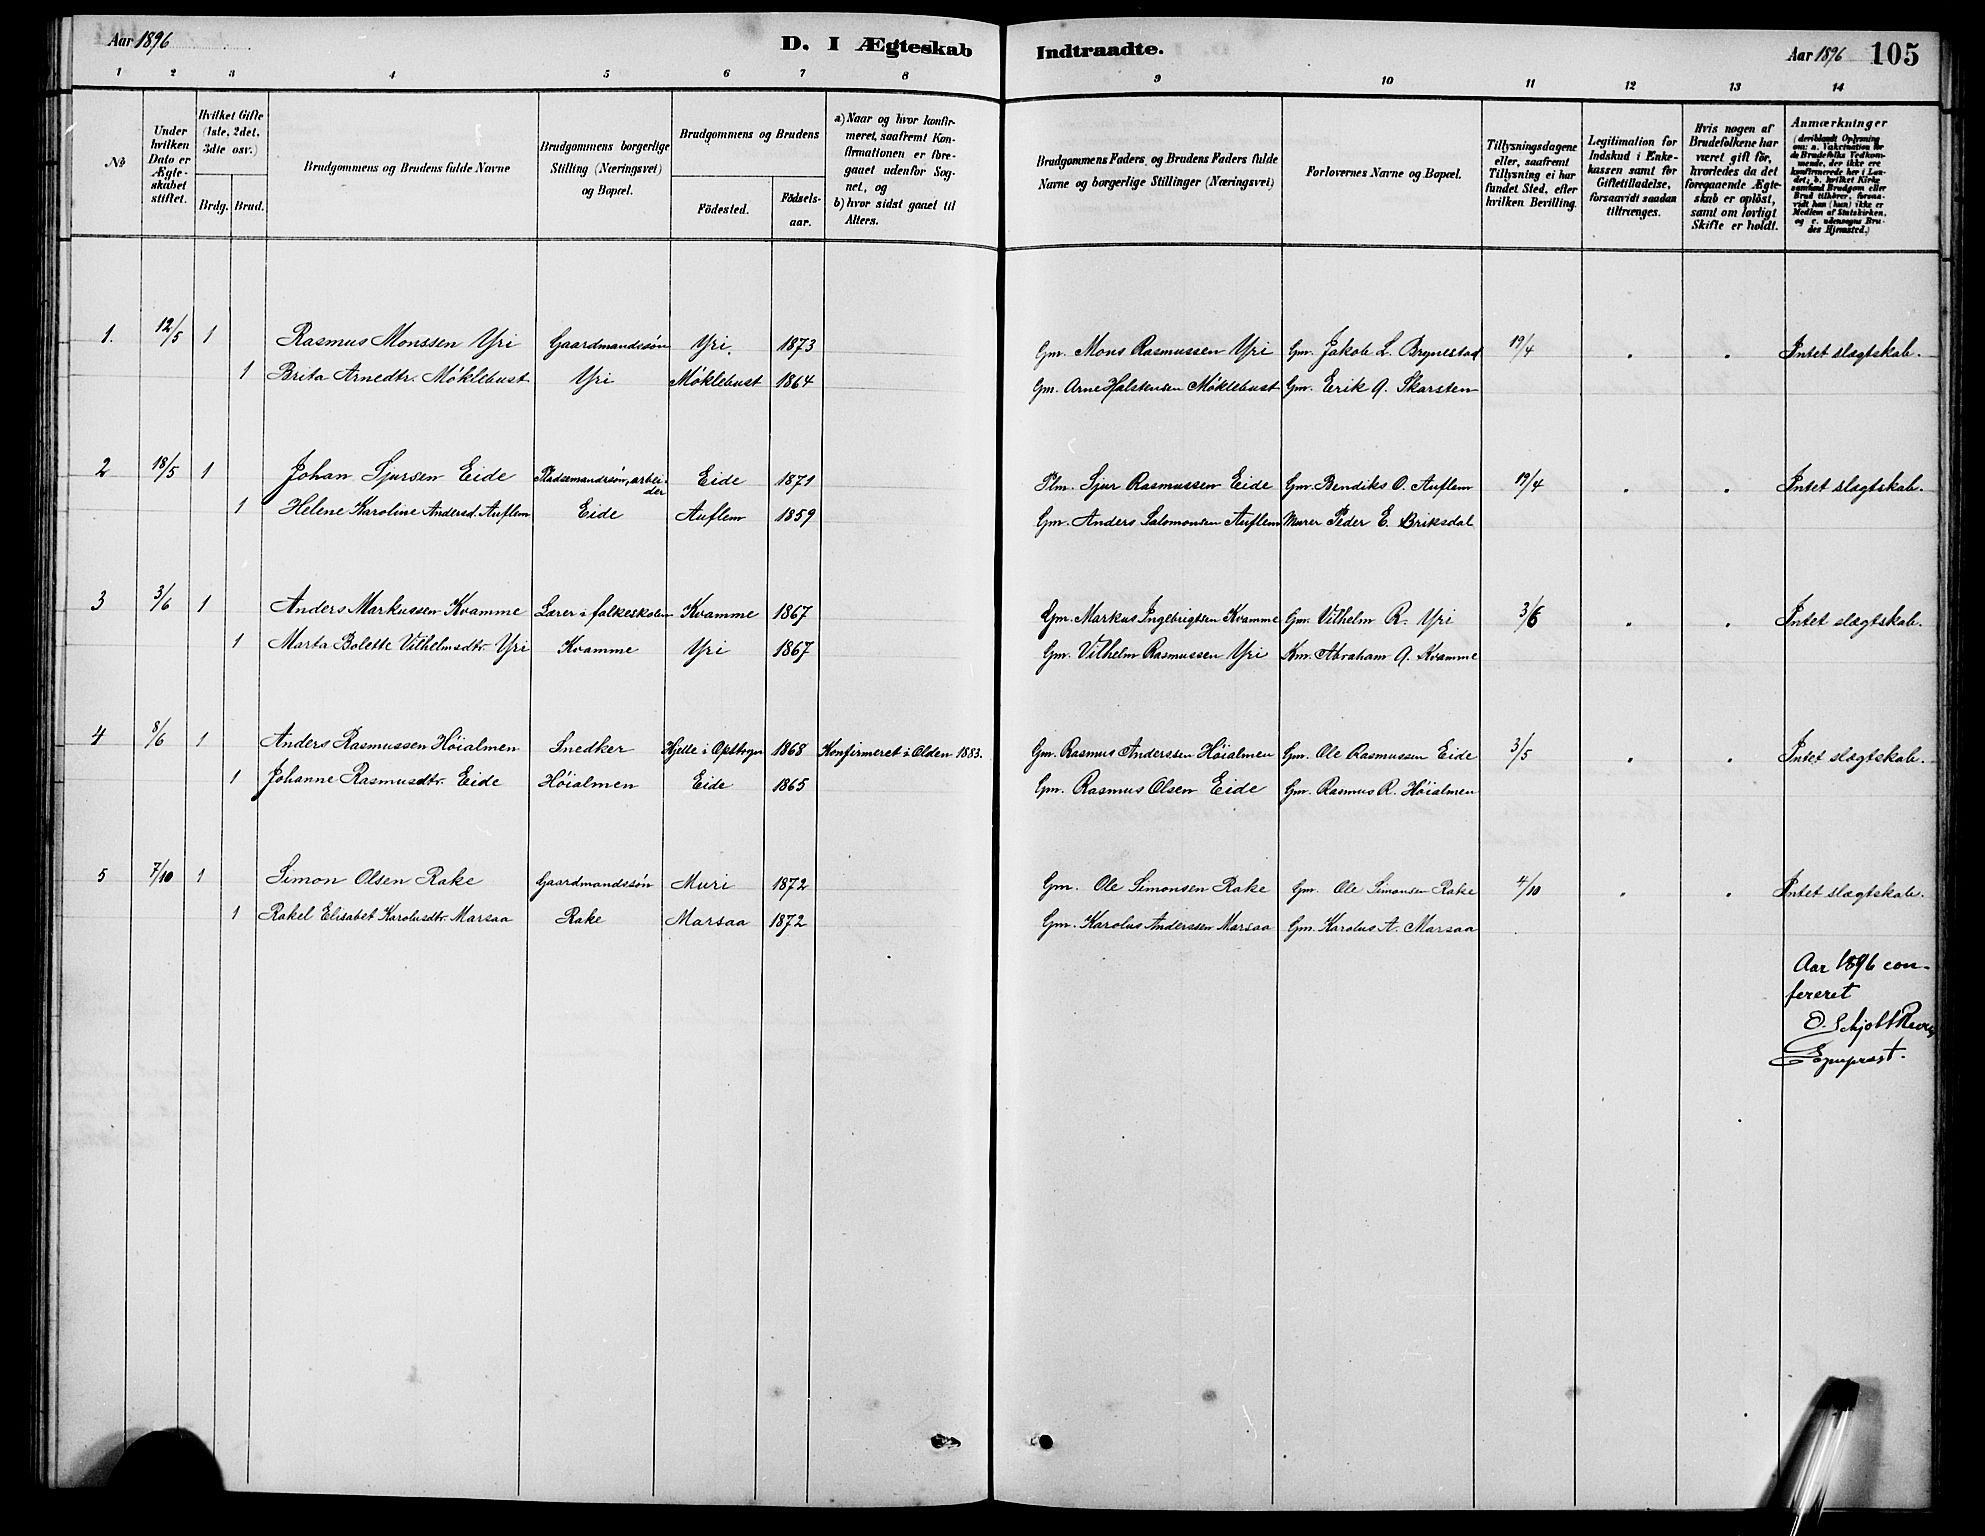 Aar 1896
D. I Ægteskab Indtraadte.
Aar 1896 105
1 2 3 4 5 6 7 8 9 10 11 12 13 14
No
Under hvilken Dato er Ægteskabet stiftet.
Hvilket Gifte (1ste, 2det, 3die osv.)
Brdg. Brud.
Brudgommens og Brudens fulde Navne
Brudgommens borgerlige Stilling (Næringsvei) og Bopæl.
Brudgommens og Brudens
Födested.
Födselsaar.
a) Naar og hvor konfirmeret, saafremt Konfirmationen er foregaaet udenfor Sognet, og
b) hvor sidst gaaet til Alters.
Brudgommens Faders og Brudens Faders fulde Navne og borgerlige Stillinger (Næringsvei)
Forlovernes Navne og Bopæl.
Tillysningsdagene eller, saafremt Tillysning ei har fundet Sted, efter hvilken Bevilling.
Legitimation for Indskud i Enkekassen samt for Giftetilladelse, forsaavidt saadan tiltrænges.
Hvis nogen af Brudefolkene har været gift för, hvorledes da det foregaaende Ægteskab er oplöst, samt om lovligt Skifte er holdt.
Anmærkninger
(deriblandt Oplysning om: a. Vaccination for de Brudefolks Vedkommende, der ikke ere konfirmerede her i Landet; b. hvilket Kirkesamfund Brudgom eller Brud tilhörer, forsaavidt han (hun) ikke er Medlem af Statskirken, og c. udensogns Brudes Hjemsted.)
1. 12/5 1 Rasmus Monssen Yri Gaardmandssøn Yri. 1873 Gm. Mons Rasmussen Yri Gm. Jakob L. Brynestad 19/4 " " Intet slægtskab.
1 Brita Arnedtr. Møklebust Yri Møklebust 1864 Gm. Arne Halstensen Møklebust Gm. Eerik A. Skarsten
2 18/5 1 Johan Sjursen Eide Pladsemandssøn, arbeider Eide 1871 Plm. Sjur Rasmussen Eide Gm. Bendiks O. Auflem 19/4 " " Intet slægtskab.
1 Helene Karoline Andersd. Auflem Eide Auflem 1859 Gm. Anders Salomonsen Auflem Murer Peder E. Briksdal
3 3/6 1 Anders Markussen Kvamme Lærer i folkeskolen Kvamme 1867 Gm. Markus Ingebrigtsen Kvamme Gm. Vilhelm R. Yri 3/5 " " Intet slægtskab.
1 Marta Bolette Vilhelmsdtr. Yri Kvamme Yri 1867 Gm. Vilhelm Rasmussen Yri Km. Abraham A. Kvamme
4 8/6 1 Anders Rasmussen Höialmen Snedker Hjelle i Opstryn 1868 Konfirmeret i Olden 1883. Gm. Rasmus Anderssen Höialmen Gm. Ole Rasmussen Eide 3/5 " " Intet slægtskab.
1 Johanne Rasmusdtr. Eide Höialmen Eide 1865 Gm. Rasmus Olsen Eide Gm. Rasmus R. Höialmen
5 7/10 1 Simon Olsen Rake Gaardmandssøn Muri 1872 Gm. Ole Simonsen Rake Gm. Ole Simonsen Rake 4/10 " " Intet slægtskab.
1 Rakel Elisabet Karolusdtr. Marsaa Rake Marsaa 1872 Gm. Karolus Anderssen Marsaa Gm. Karolus A. Marsaa
Aar 1896 con-
fereret
O. Schjolt
Sogneprest.